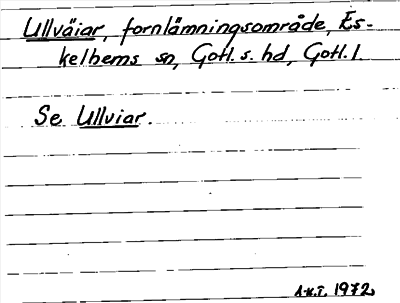 Ullväiar, fornlämningsområde, Es-
kelhems sn, Gotl. s. hd, Gotl. l.
Se Ullviar.
1972